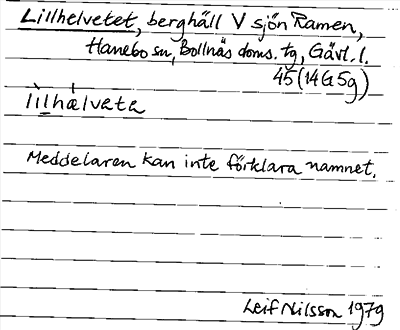 Lillhelvetet, berghäll V sjön Ramen,
Hanebo sn, Bollnäs doms. tg, Gävl. l.
45 (14G5g)
lìlhælveta
Meddelaren kan inte förklara namnet.
Leif Nilsson 1979